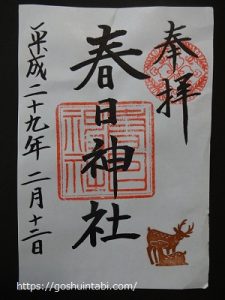 奉拝
春日神社
平成二十九年 二月十二日
https://goshuintabi.com/